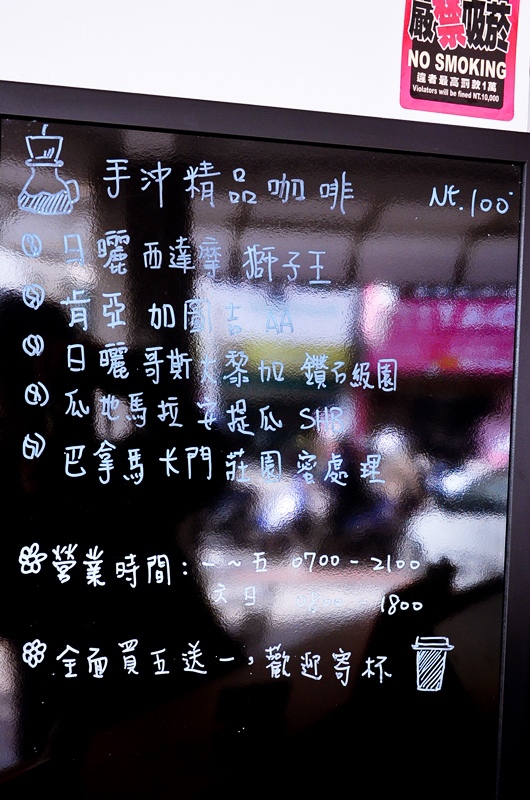 嚴禁吸菸
NO SMOKING
違者最高罰款1萬
Violators will be fined NT.10,000
手沖精品咖啡 Nt.100
日曬西達摩 獅子王
肯亞 加圖吉 AA
日曬哥斯大黎加 鑽石級園
瓜地馬拉安提瓜 SHB
巴拿馬卡門莊園蜜處理
營業時間:一~五 0700-2100
六日 0800-1800
全面買五送一,歡迎寄杯